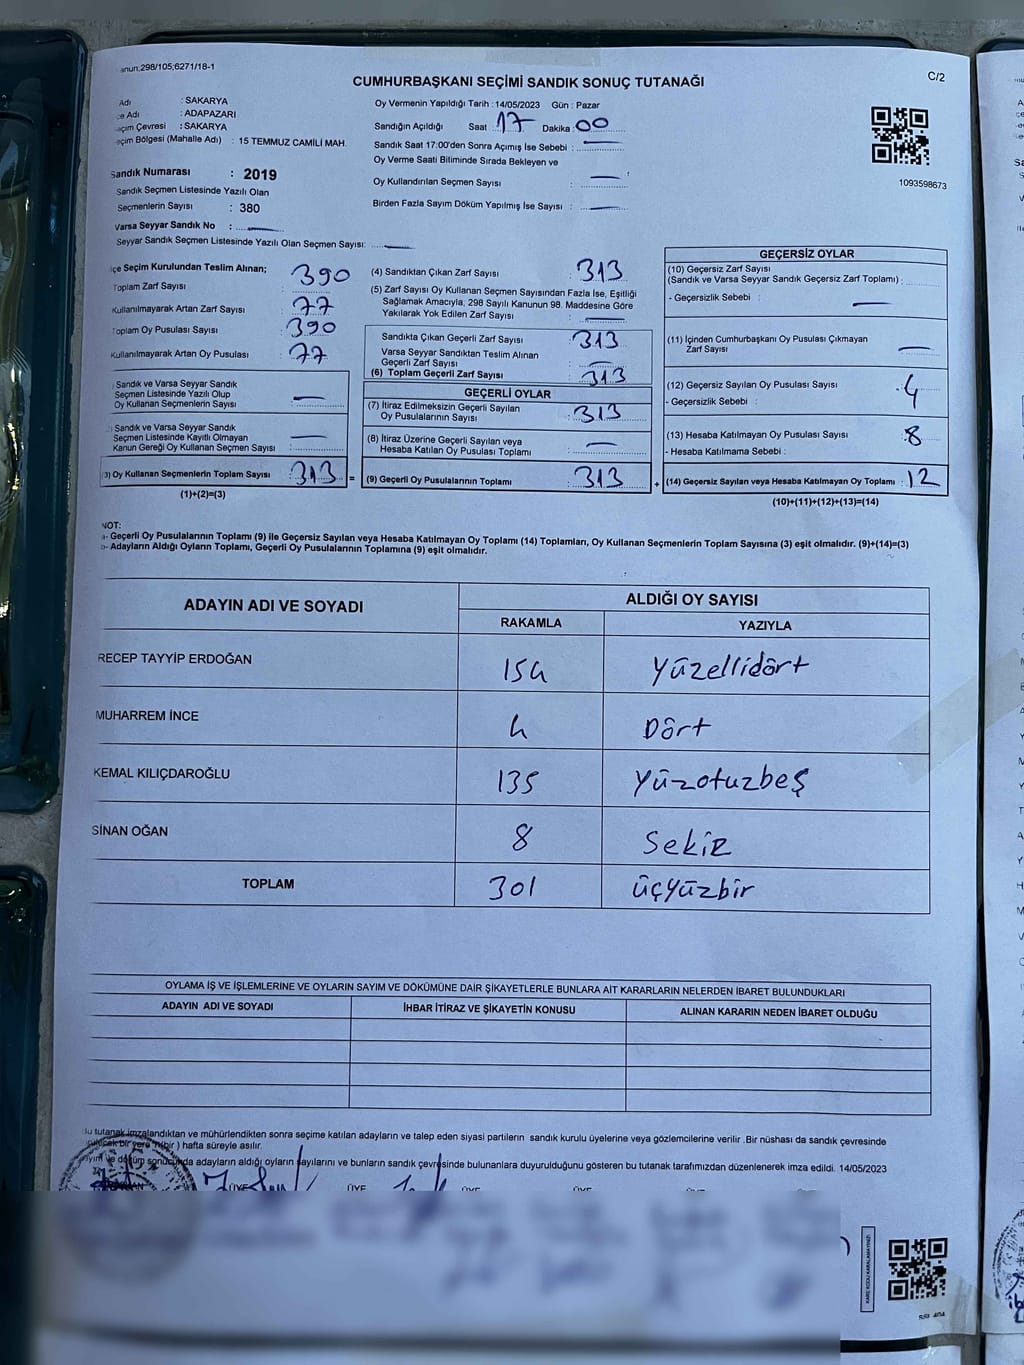 anun;298/105;6271/18-1
C/2
CUMHURBAŞKANI SEÇİMİ SANDIK SONUÇ TUTANAĞI
Adı : SAKARYA
çe Adı : ADAPAZARI
eçim Çevresi : SAKARYA
eçim Bölgesi (Mahalle Adı) : 15 TEMMUZ CAMİLİ MAH.
Sandık Numarası : 2019
Sandık Seçmen Listesinde Yazılı Olan
Seçmenlerin Sayısı : 380
Varsa Seyyar Sandık No :
Seyyar Sandık Seçmen Listesinde Yazılı Olan Seçmen Sayısı:
Oy Vermenin Yapıldığı Tarih : 14/05/2023 Gün : Pazar
Sandığın Açıldığı Saat 17 Dakika : 00
Sandık Saat 17:00'den Sonra Açımış İse Sebebi :
Oy Verme Saati Bitiminde Sırada Bekleyen ve
Oy Kullandırılan Seçmen Sayısı :
Birden Fazla Sayım Döküm Yapılmış İse Sayısı :
1093598673
çe Seçim Kurulundan Teslim Alınan;
Toplam Zarf Sayısı : 390
Kullanılmayarak Artan Zarf Sayısı : 77
Toplam Oy Pusulası Sayısı : 390
Kullanılmayarak Artan Oy Pusulası : 77
Sandık ve Varsa Seyyar Sandık
Seçmen Listesinde Yazılı Olup
Oy Kullanan Seçmenlerin Sayısı :
Sandık ve Varsa Seyyar Sandık
Seçmen Listesinde Kayıtlı Olmayan
Kanun Gereği Oy Kullanan Seçmen Sayısı :
3) Oy Kullanan Seçmenlerin Toplam Sayısı : 313 =
(1)+(2)=(3)
(4) Sandıktan Çıkan Zarf Sayısı : 313
(5) Zarf Sayısı Oy Kullanan Seçmen Sayısından Fazla İse, Eşitliği
Sağlamak Amacıyla, 298 Sayılı Kanunun 98. Maddesine Göre
Yakılarak Yok Edilen Zarf Sayısı :
Sandıkta Çıkan Geçerli Zarf Sayısı : 313
Varsa Seyyar Sandıktan Teslim Alınan
Geçerli Zarf Sayısı :
(6) Toplam Geçerli Zarf Sayısı : 313
GEÇERLİ OYLAR
(7) İtiraz Edilmeksizin Geçerli Sayılan
Oy Pusulalarının Sayısı : 313
(8) İtiraz Üzerine Geçerli Sayılan veya
Hesaba Katılan Oy Pusulası Toplamı :
(9) Geçerli Oy Pusulalarının Toplamı : 313 +
GEÇERSİZ OYLAR
(10) Geçersiz Zarf Sayısı
(Sandık ve Varsa Seyyar Sandık Geçersiz Zarf Toplamı) :
- Geçersizlik Sebebi :
(11) İçinden Cumhurbaşkanı Oy Pusulası Çıkmayan
Zarf Sayısı :
(12) Geçersiz Sayılan Oy Pusulası Sayısı : 4
- Geçersizlik Sebebi :
(13) Hesaba Katılmayan Oy Pusulası Sayısı : 8
- Hesaba Katılmama Sebebi :
(14) Geçersiz Sayılan veya Hesaba Katılmayan Oy Toplamı : 12
(10)+(11)+(12)+(13)=(14)
NOT:
a- Geçerli Oy Pusulalarının Toplamı (9) ile Geçersiz Sayılan veya Hesaba Katılmayan Oy Toplamı (14) Toplamları, Oy Kullanan Seçmenlerin Toplam Sayısına (3) eşit olmalıdır. (9)+(14)=(3)
b- Adayların Aldığı Oyların Toplamı, Geçerli Oy Pusulalarının Toplamına (9) eşit olmalıdır.
ADAYIN ADI VE SOYADI
ALDIĞI OY SAYISI
RAKAMLA YAZIYLA
RECEP TAYYİP ERDOĞAN 154 Yüzellidört
MUHARREM İNCE 4 Dört
KEMAL KILIÇDAROĞLU 135 Yüzotuzbeş
SİNAN OĞAN 8 Sekiz
TOPLAM 301 üçyüzbir
OYLAMA İŞ VE İŞLEMLERİNE VE OYLARIN SAYIM VE DÖKÜMÜNE DAİR ŞİKAYETLERLE BUNLARA AİT KARARLARIN NELERDEN İBARET BULUNDUKLARI
ADAYIN ADI VE SOYADI İHBAR İTİRAZ VE ŞİKAYETİN KONUSU ALINAN KARARIN NEDEN İBARET OLDUĞU
Bu tutanak imzalandıktan ve mühürlendikten sonra seçime katılan adayların ve talep eden siyasi partilerin sandık kurulu üyelerine veya gözlemcilerine verilir .Bir nüshası da sandık çevresinde
bir yere (bir ) hafta süreyle asılır.
ayım ve döküm sonucunda adayların aldığı oyların sayılarını ve bunların sandık çevresinde bulunanlara duyurulduğunu gösteren bu tutanak tarafımızdan düzenlenerek imza edildi. 14/05/2023
ÜYE ÜYE ÜYE ÜYE ÜYE ÜYE